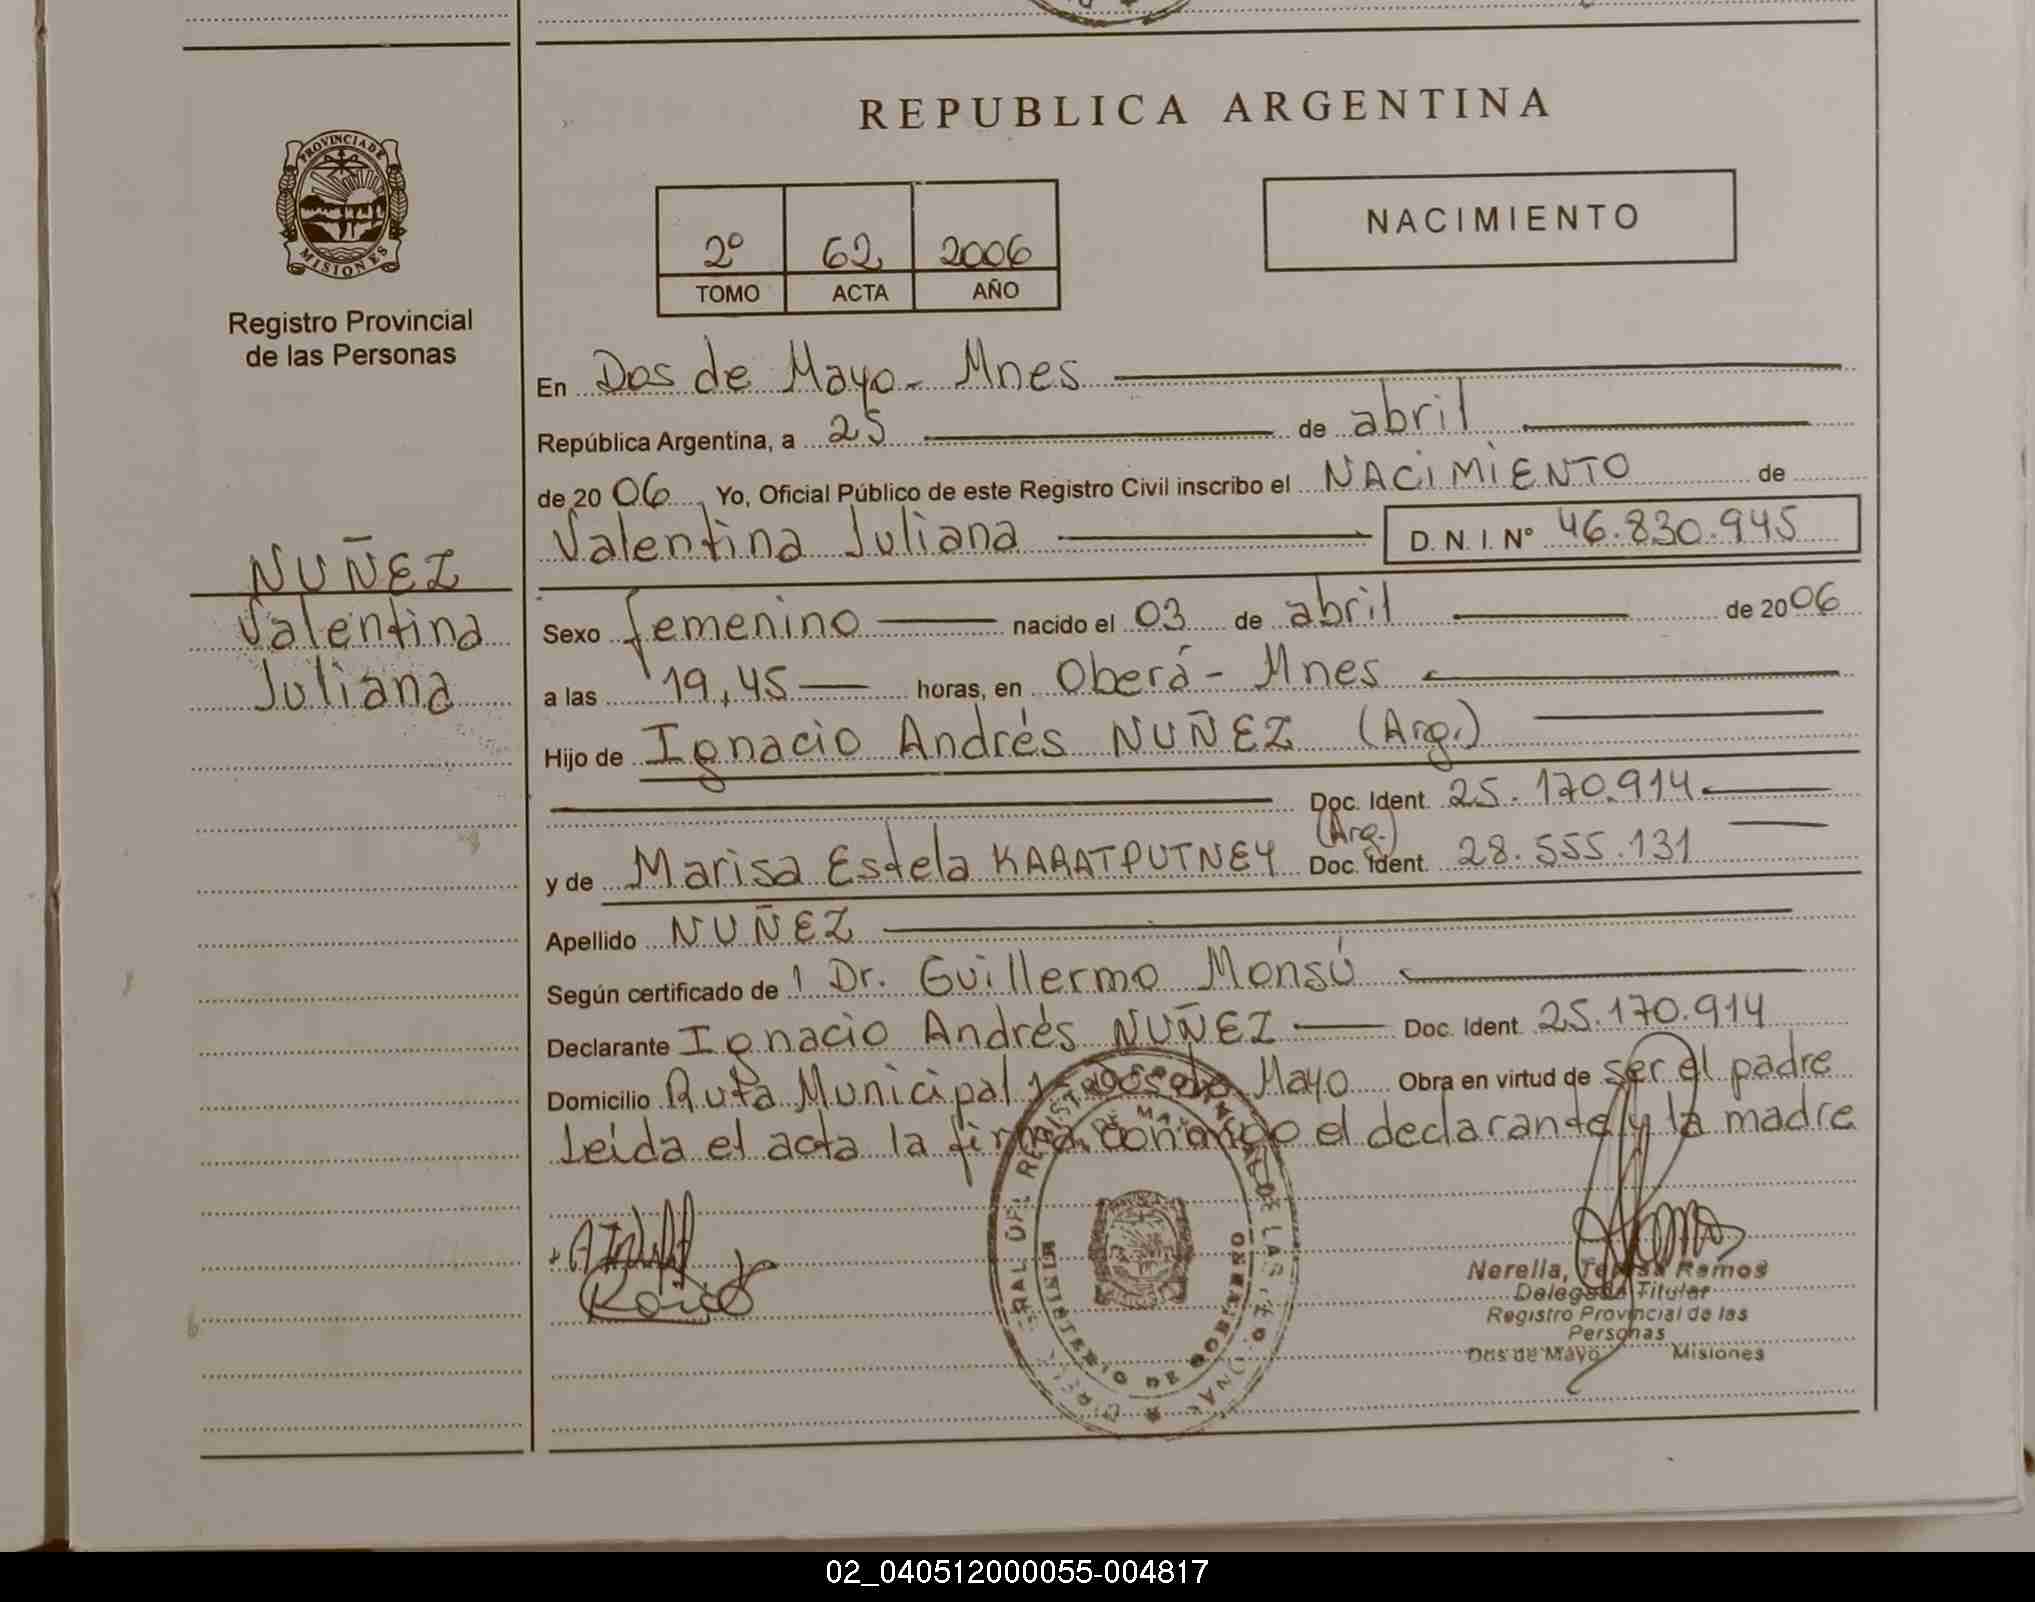 REPUBLICA ARGENTINA
PROVINCIA DE MISIONES
Registro Provincial
de las Personas
2º 62 2006
TOMO ACTA AÑO
NACIMIENTO
NUÑEZ
Valentina
Juliana
En Dos de Mayo - Mnes
República Argentina, a 25 de abril
de 20 06, Yo, Oficial Público de este Registro Civil inscribo el NACIMIENTO de
Valentina Juliana D. N. I. Nº 46.830.945
Sexo femenino nacido el 03 de abril de 20 06
a las 19,45 horas, en Oberá - Mnes
Hijo de Ignacio Andrés NUÑEZ (Arg.)
Doc. Ident. 25.170.914
(Arg.)
y de Marisa Estela KARATPUTNEY Doc. Ident. 28.555.131
Apellido NUÑEZ
Según certificado de 1 Dr. Guillermo Monsú
Declarante Ignacio Andrés NUÑEZ Doc. Ident. 25.170.914
Domicilio Ruta Municipal 1 - Dos de Mayo Obra en virtud de ser el padre
Leída el acta la firma conmigo el declarante y la madre
MINISTERIO DE GOBIERNO
Nerella, Teresa Ramos
Delegada Titular
Registro Provincial de las
Personas
Dos de Mayo Misiones
02_040512000055-004817